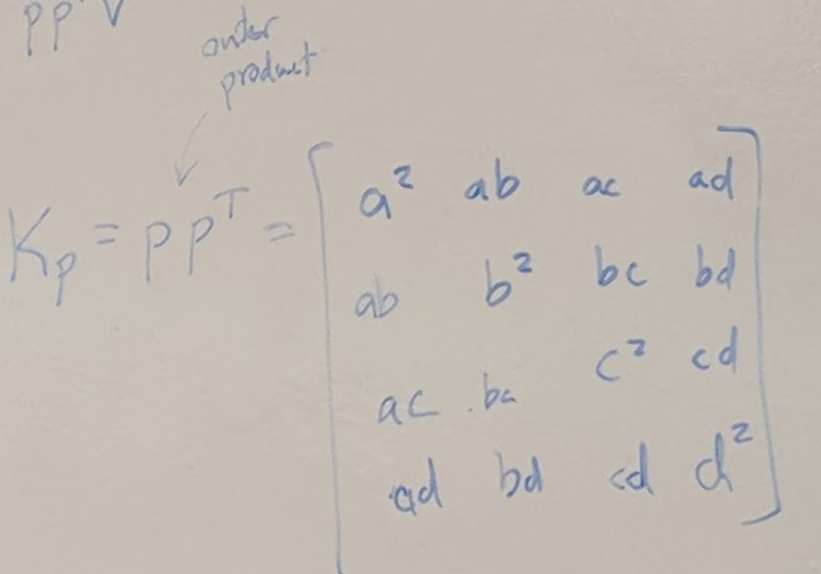 pp v
outer
product
Kp = p pᵀ = [ a² ab ac ad
ab b² bc bd
ac bc c² cd
ad bd cd d² ]